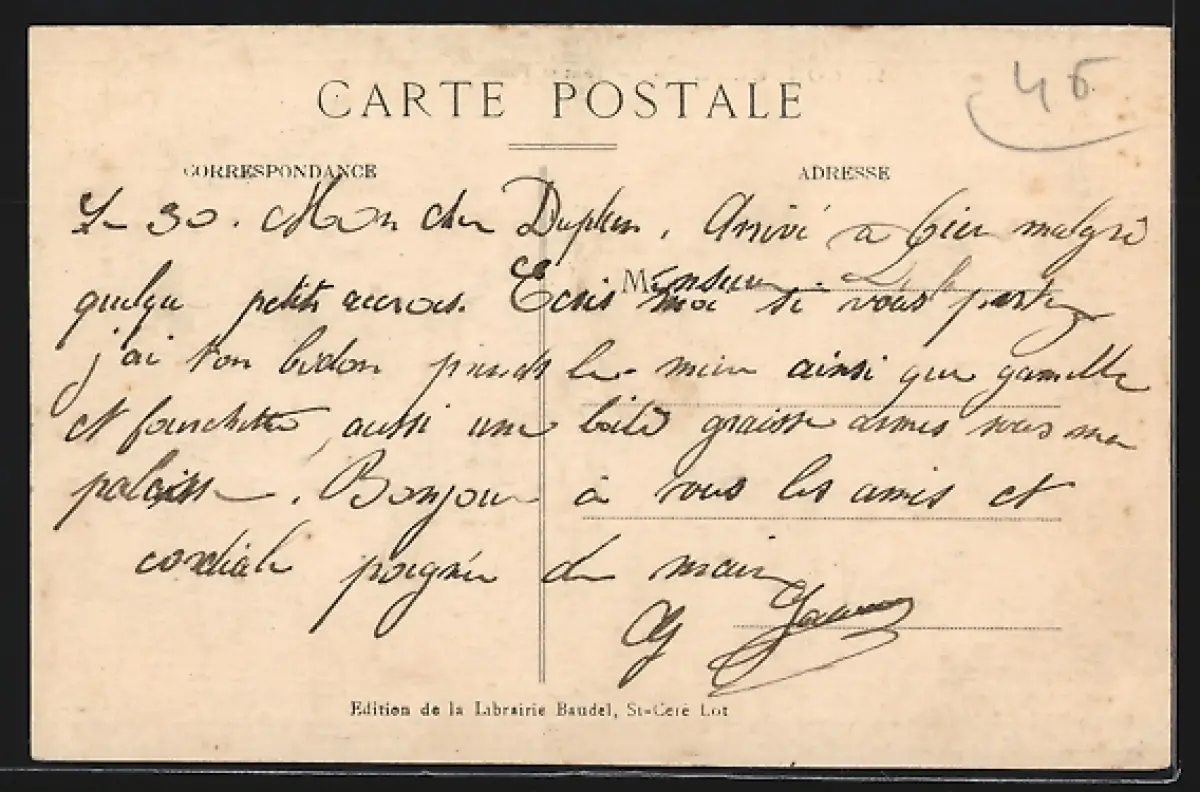 CARTE POSTALE
46
CORRESPONDANCE
ADRESSE
Le 30. Mon cher Duplen, Arrivé a bien malgré
Monsieur
quelque petits accrocs. Ecris moi si vous partez
j'ai ton bidon prends le mien ainsi que gamelle
et fourchette, aussi une boîte graisse armes sous ma
paloisse. Bonjour à tous les amis et
cordiale poignée de main
G
Edition de la Librairie Baudel, St-Céré Lot